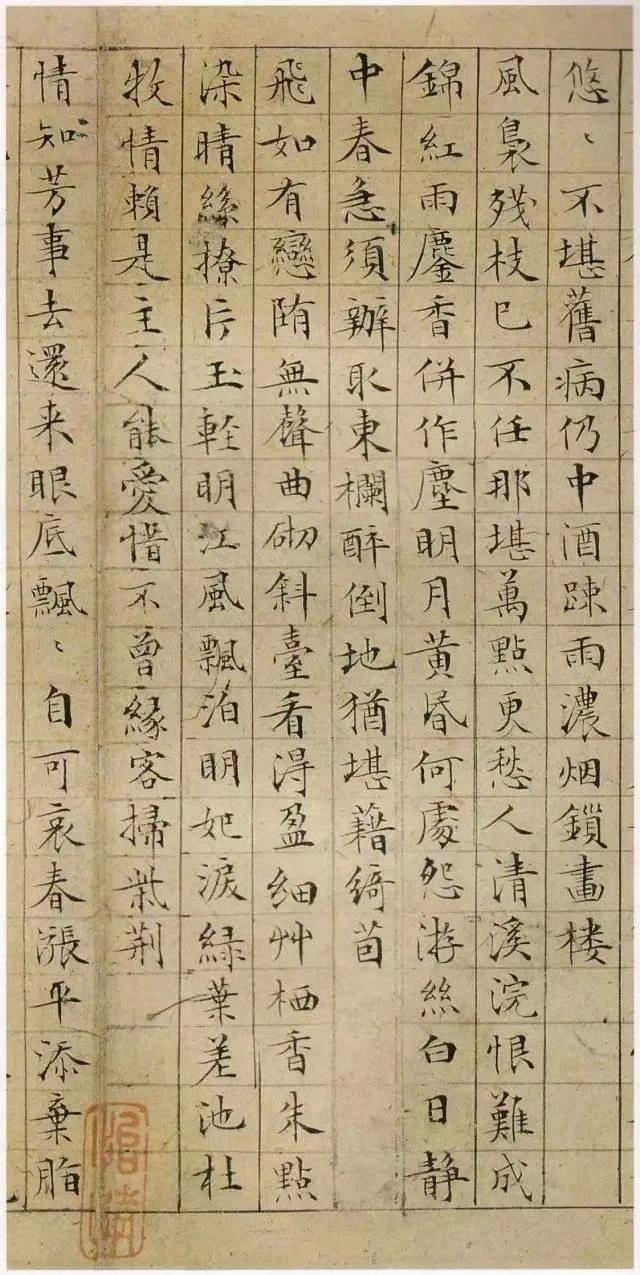 悠〻不堪舊病仍中酒踈雨濃烟鎖畫楼
風裊残枝已不任那堪萬點更愁人清溪浣恨難成
錦紅雨鏖香併作塵明月黄昏何處怨游絲白日靜
中春急須辦取東欄醉倒地猶堪藉綺茵
飛如有戀陏無聲曲砌斜臺看得盈細艸栖香朱點
染晴絲撩片玉輕明江風飄泊明妃淚緑葉差池杜
牧情賴是主人能愛惜不曾緣客掃柴荆
情知芳事去還来眼底飄〻自可哀春漲平添棄脂